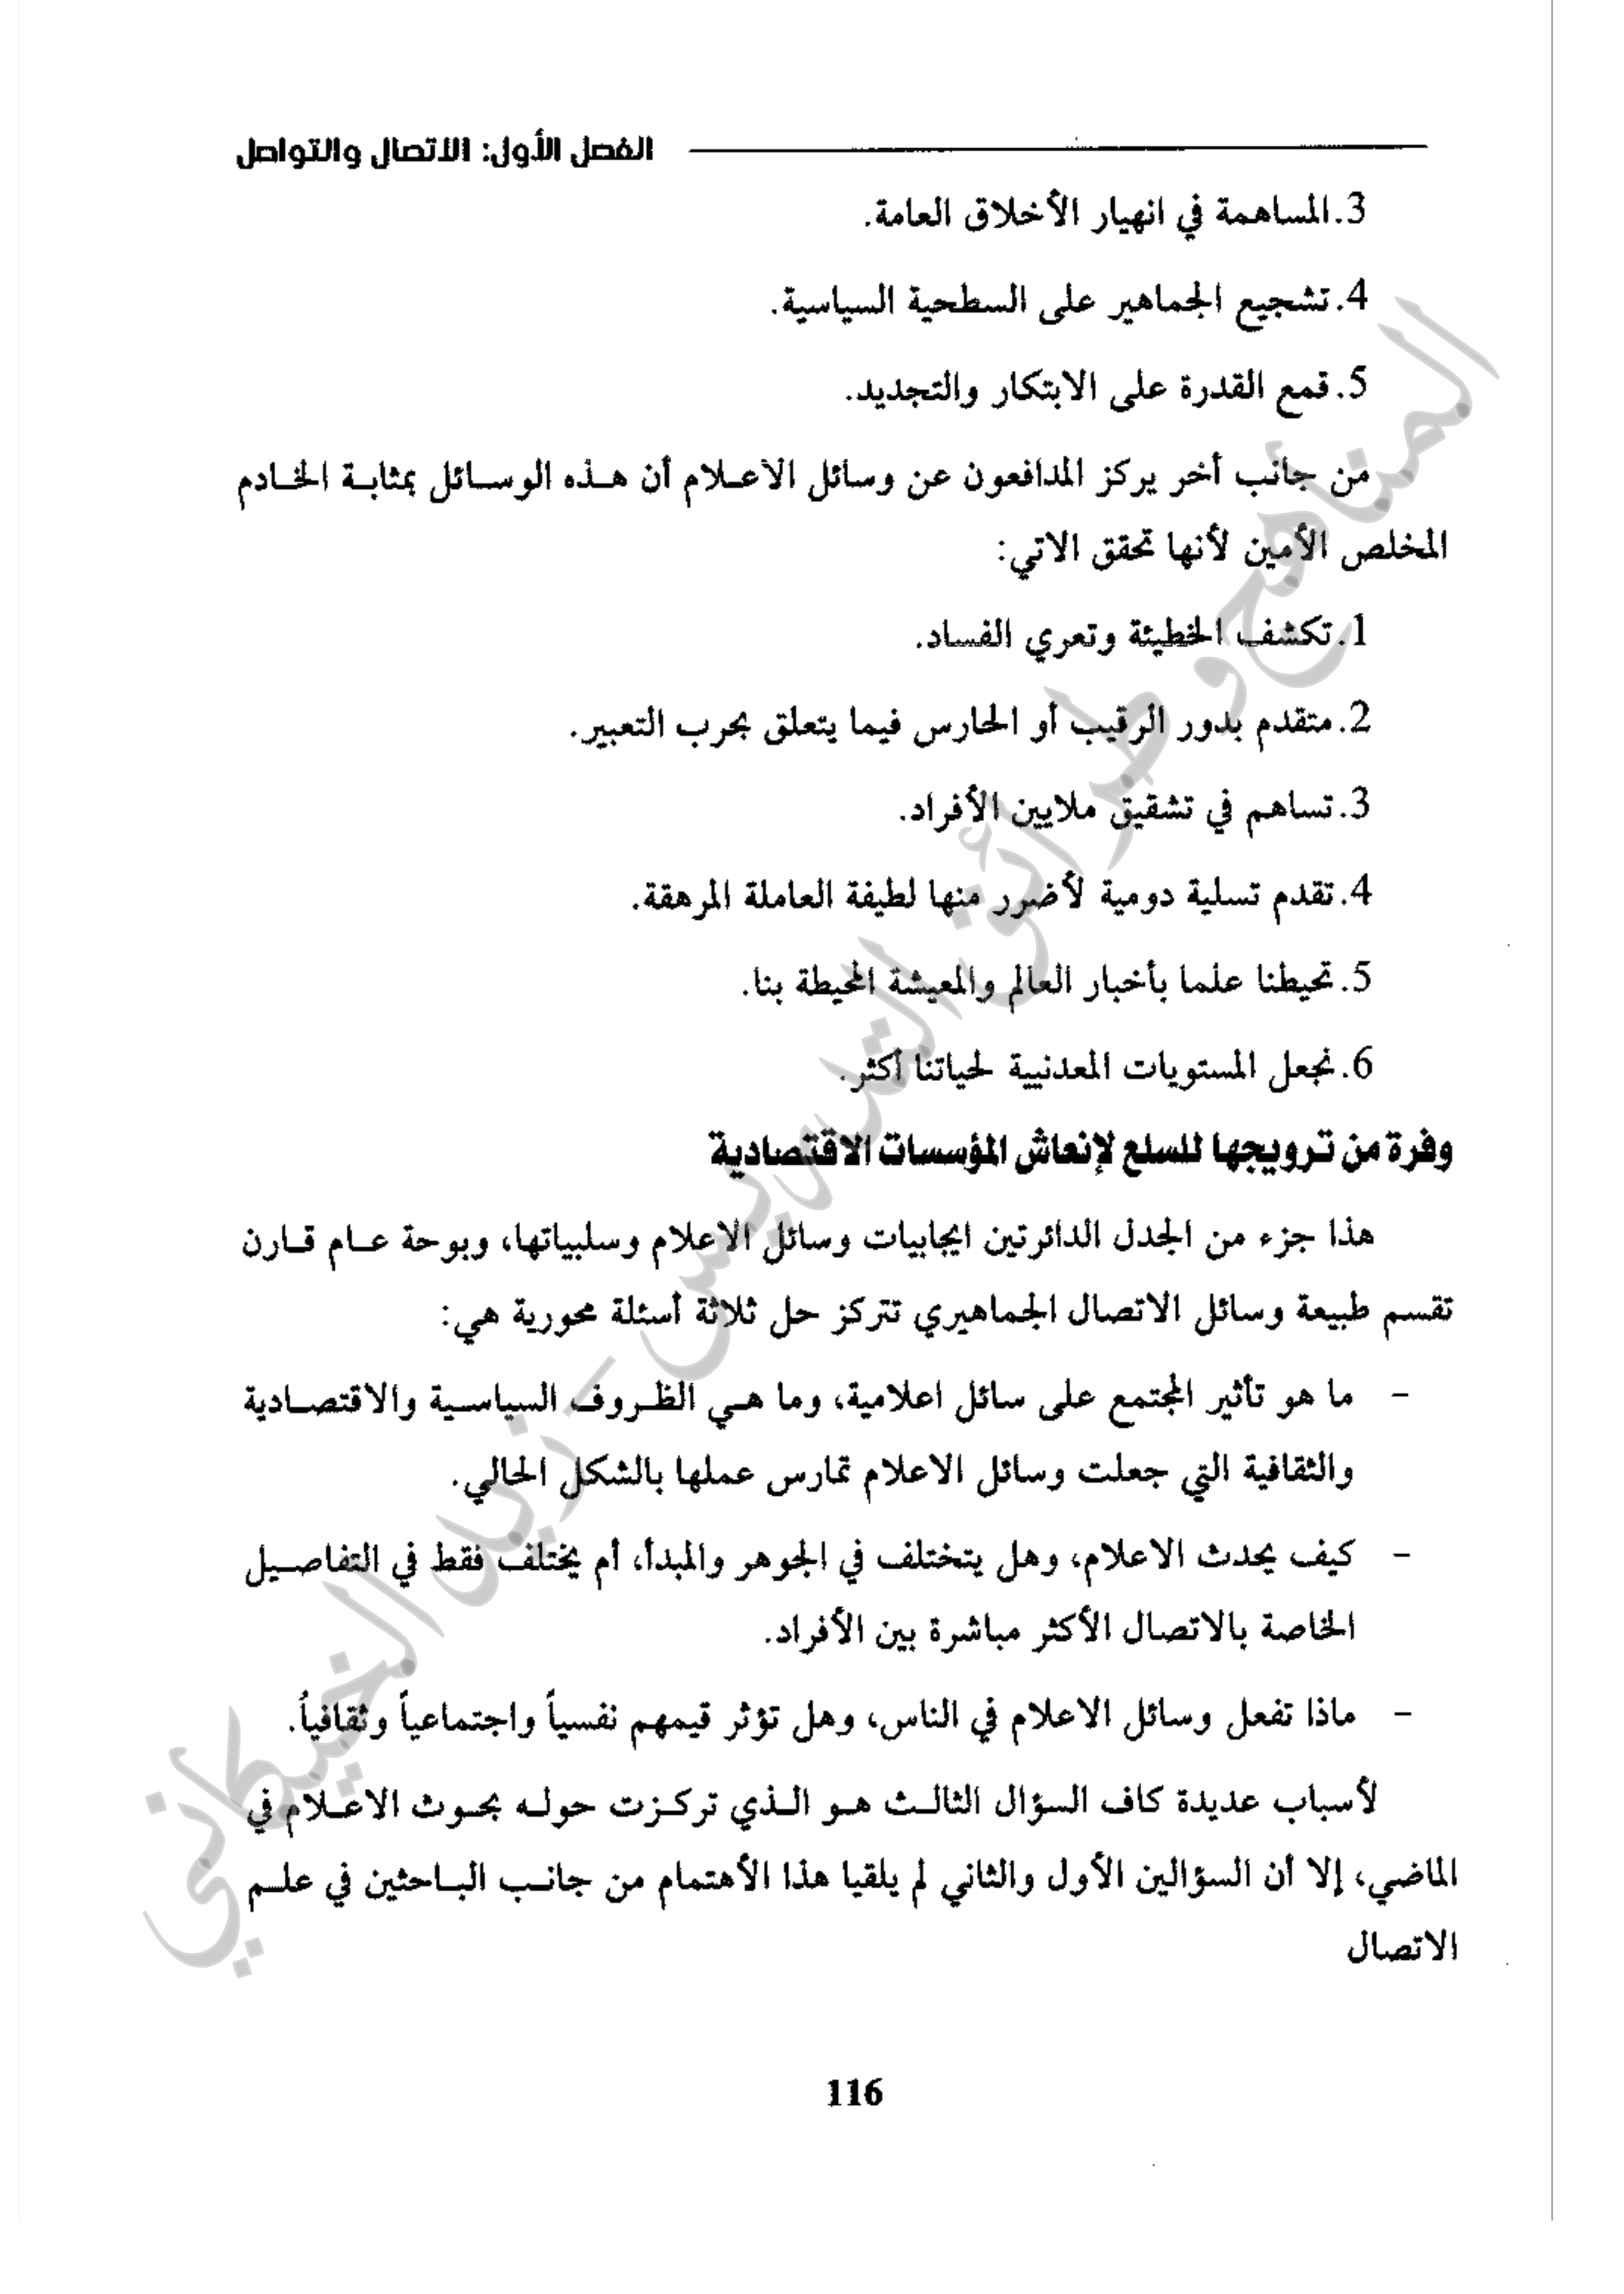 الفصل الأول: الاتصال والتواصل
3. المساهمة في انهيار الأخلاق العامة.
4. تشجيع الجماهير على السطحية السياسية.
5. قمع القدرة على الابتكار والتجديد.
من جانب أخر يركز المدافعون عن وسائل الاعلام أن هذه الوسائل بمثابة الخادم
المخلص الأمين لأنها تحقق الاتي:
1. تكشف الخطيئة وتعري الفساد.
2. متقدم بدور الرقيب أو الحارس فيما يتعلق بجرب التعبير.
3. تساهم في تشقيق ملايين الأفراد.
4. تقدم تسلية دومية لأضرر منها لطيفة العاملة المرهقة.
5. تحيطنا علما بأخبار العالم والمعيشة المحيطة بنا.
6. نجعل المستويات المعدنيية لحياتنا أكثر.
وفرة من ترويجها للسلع لإنعاش المؤسسات الاقتصادية
هذا جزء من الجدل الدائرتين ايجابيات وسائل الاعلام وسلبياتها، وبوحة عام قارن
تقسم طبيعة وسائل الاتصال الجماهيري تتركز حل ثلاثة أسئلة محورية هي:
- ما هو تأثير المجتمع على سائل اعلامية، وما هي الظروف السياسية والاقتصادية
والثقافية التي جعلت وسائل الاعلام تمارس عملها بالشكل الحالي.
- كيف يحدث الاعلام، وهل يتختلف في الجوهر والمبدأ، أم يختلف فقط في التفاصيل
الخاصة بالاتصال الأكثر مباشرة بين الأفراد.
- ماذا تفعل وسائل الاعلام في الناس، وهل تؤثر قيمهم نفسياً واجتماعياً وثقافياً.
لأسباب عديدة كاف السؤال الثالث هو الذي تركزت حوله بحوث الاعلام في
الماضي، إلا أن السؤالين الأول والثاني لم يلقيا هذا الأهتمام من جانب الباحثين في علم
الاتصال
116
المناهج وطرائق التدريس - زيد الخيكاني